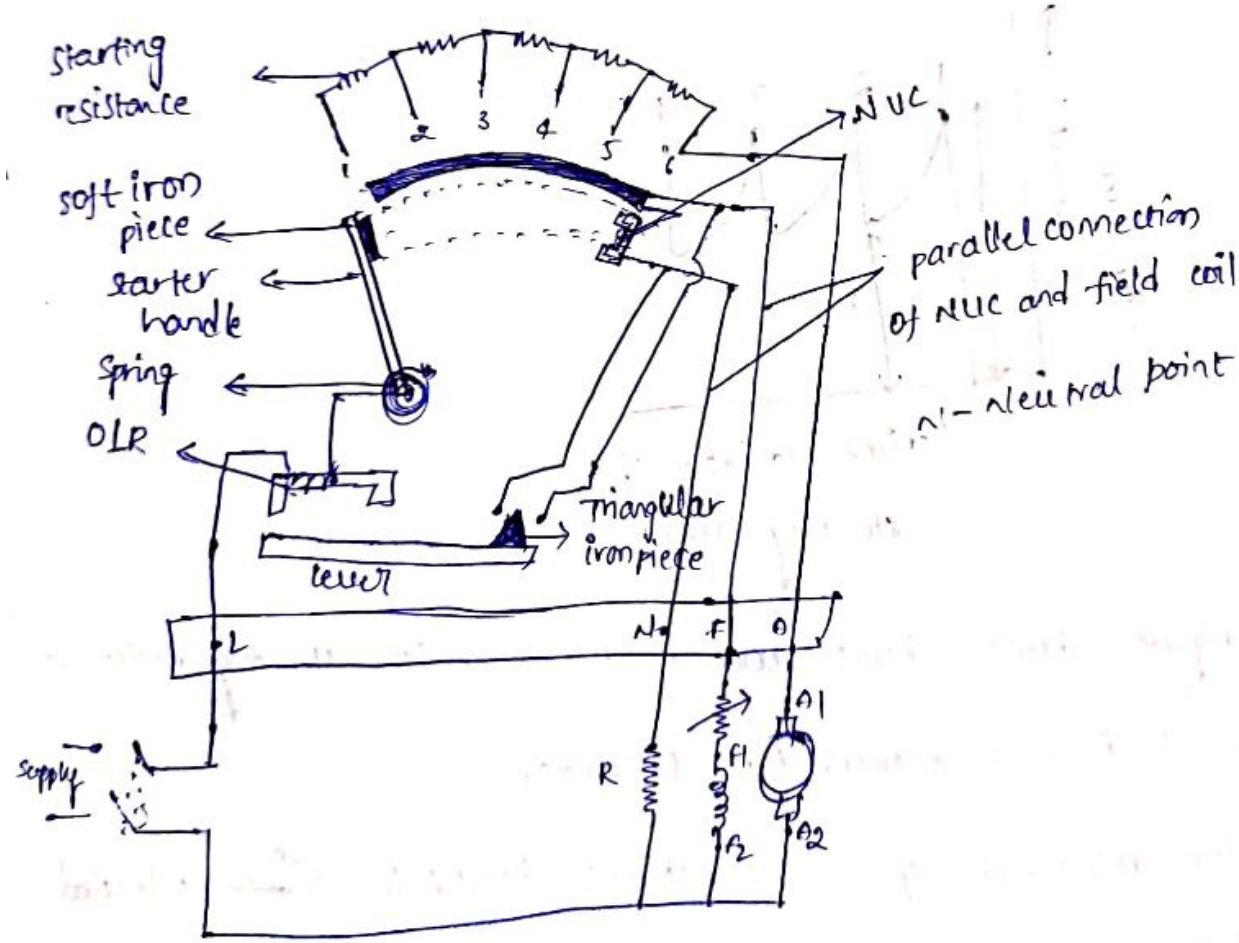 Starting
resistance
1
2
3
4
5
6
NUC
soft iron
piece
starter
handle
Spring
OLR
parallel connection
of NUC and field coil
N - Neutral point
Triangular
iron piece
lever
L
N
F
A
supply
R
A1
F1
F2
A2